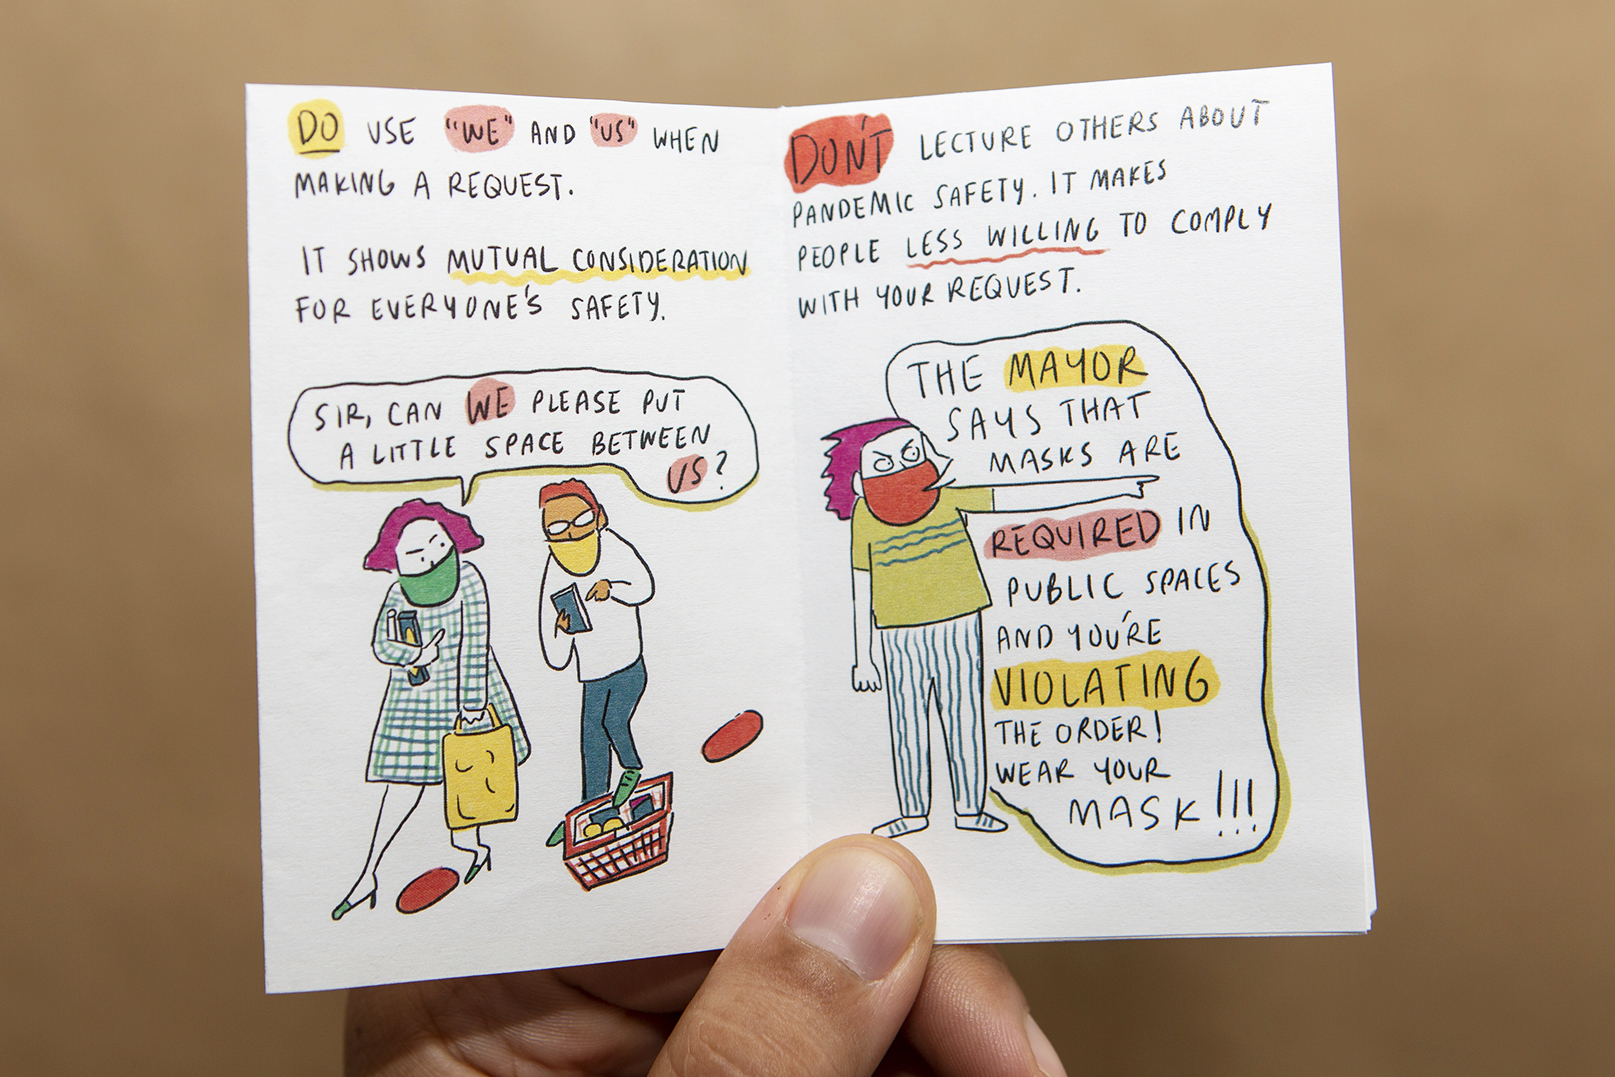 DO USE "WE" AND "US" WHEN
MAKING A REQUEST.
IT SHOWS MUTUAL CONSIDERATION
FOR EVERYONE'S SAFETY.
SIR, CAN WE PLEASE PUT
A LITTLE SPACE BETWEEN
US?
DON'T LECTURE OTHERS ABOUT
PANDEMIC SAFETY. IT MAKES
PEOPLE LESS WILLING TO COMPLY
WITH YOUR REQUEST.
THE MAYOR
SAYS THAT
MASKS ARE
REQUIRED IN
PUBLIC SPACES
AND YOU'RE
VIOLATING
THE ORDER!
WEAR YOUR
MASK!!!